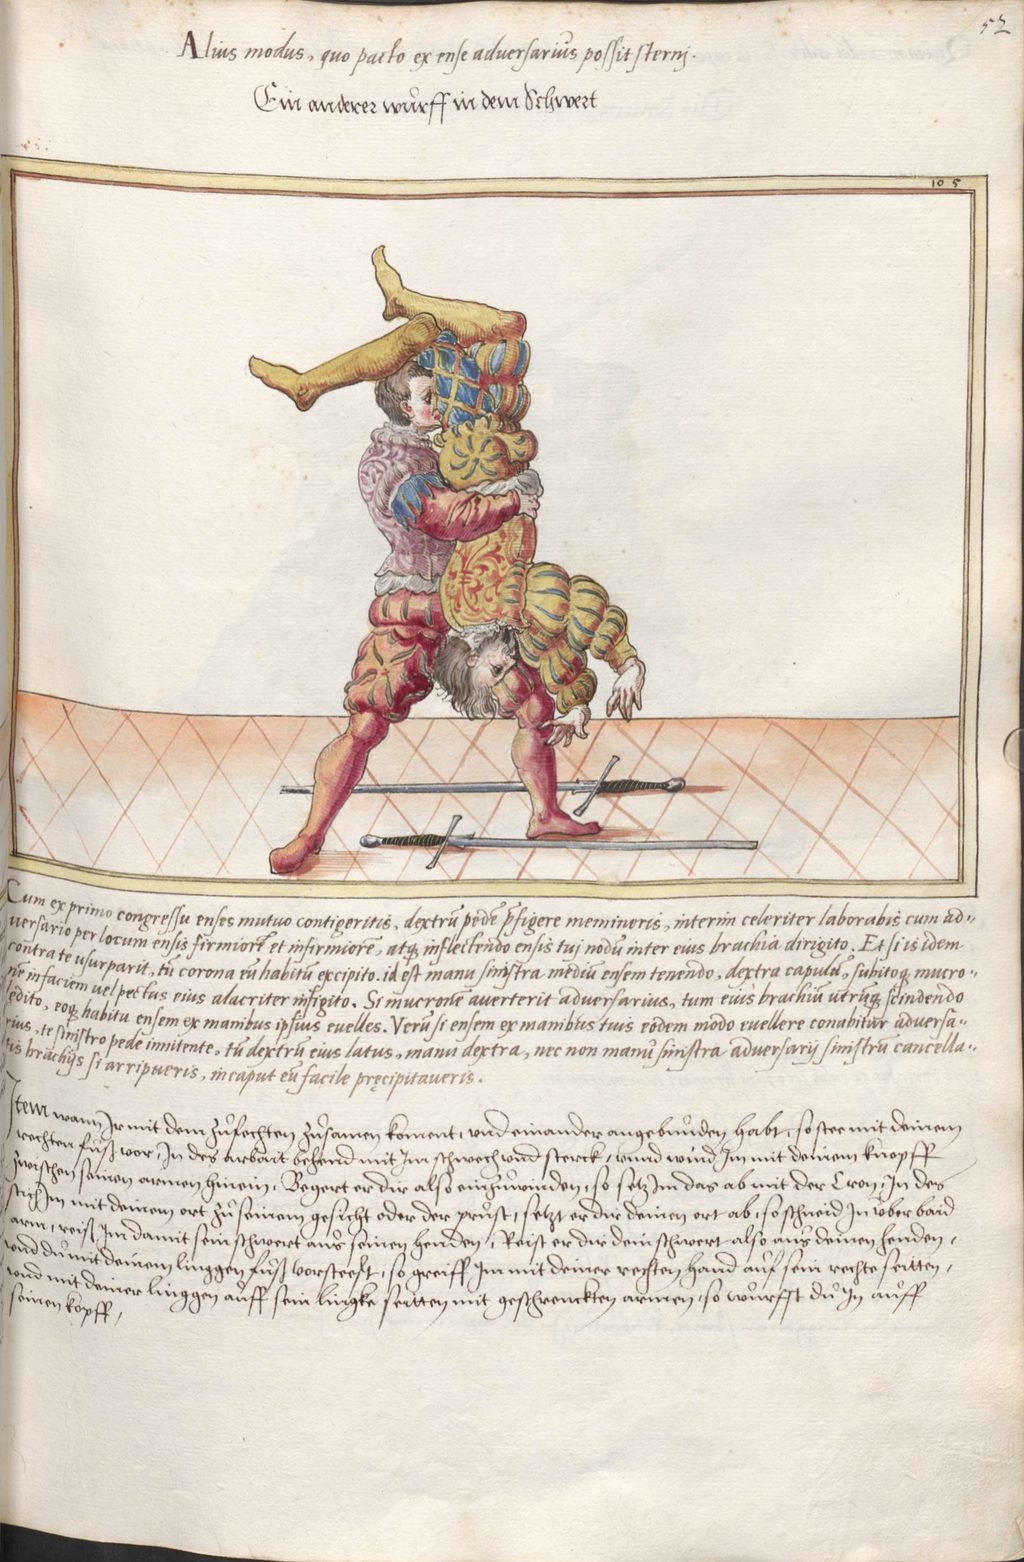 52
Alius modus, quo pacto ex ense adversarius possit sterni.
Ein anderer wurff in dem Schwert
10 5
Cum ex primo congressu enses mutuo contigeritis, dextrũ pedẽ p̃figere memineris, interim celeriter laborabis cum ad-
versario per locum ensis firmiorẽ et infirmiorẽ, atq; inflectendo ensis tuj nodũ inter eius brachia dirigito. Et si is idem
contra te usurparit, tũ corona eũ habitũ excipito. id est manu sinistra mediũ ensem tenendo, dextra capulũ, subitoq; mucro-
nẽ in faciem vel pectus eius alacriter infigito. Si mucronẽ averterit adversarius, tum eius brachiũ utrũq; scindendo
ledito, eoq; habitu ensem ex manibus ipsius evelles. Verũ si ensem ex manibus tuis eodem modo evellere conabitur adversa-
rius, te sinistro pede innitente, tũ dextrũ eius latus, manu dextra, nec non manũ sinistra adversarij sinistrũ cancella-
tis brachijs si arripueris, in caput eũ facile pręcipitaveris.
Item wann Ir mit dem zufechten zusamen koment, und einander angebunden habt, so stee mit deinem
rechten fuß vor, In des arbait behend mit Im schwech und sterck, unnd wind Im mit deinem knopff
zwischen seinen armen hinein, Begert er dir also einzuwinden, so setz Im das ab mit der Cron, In des
stich Im mit deinem ort zu seinem gesicht oder der prust, setzt er dir deinen ort ab, so schneid In uber baid
arm, reiß Im damit sein schwert aus seinen henden, Reist er dir dein schwert also aus deinen henden,
und du mit deinem linggen fuß vorsteest, so greiff Im mit deiner rechten hand auf sein rechte seitten,
und mit deiner linggen auff sein lingke seitten mit geschrenckten armen, so wurffst du In auff
seinen kopff,